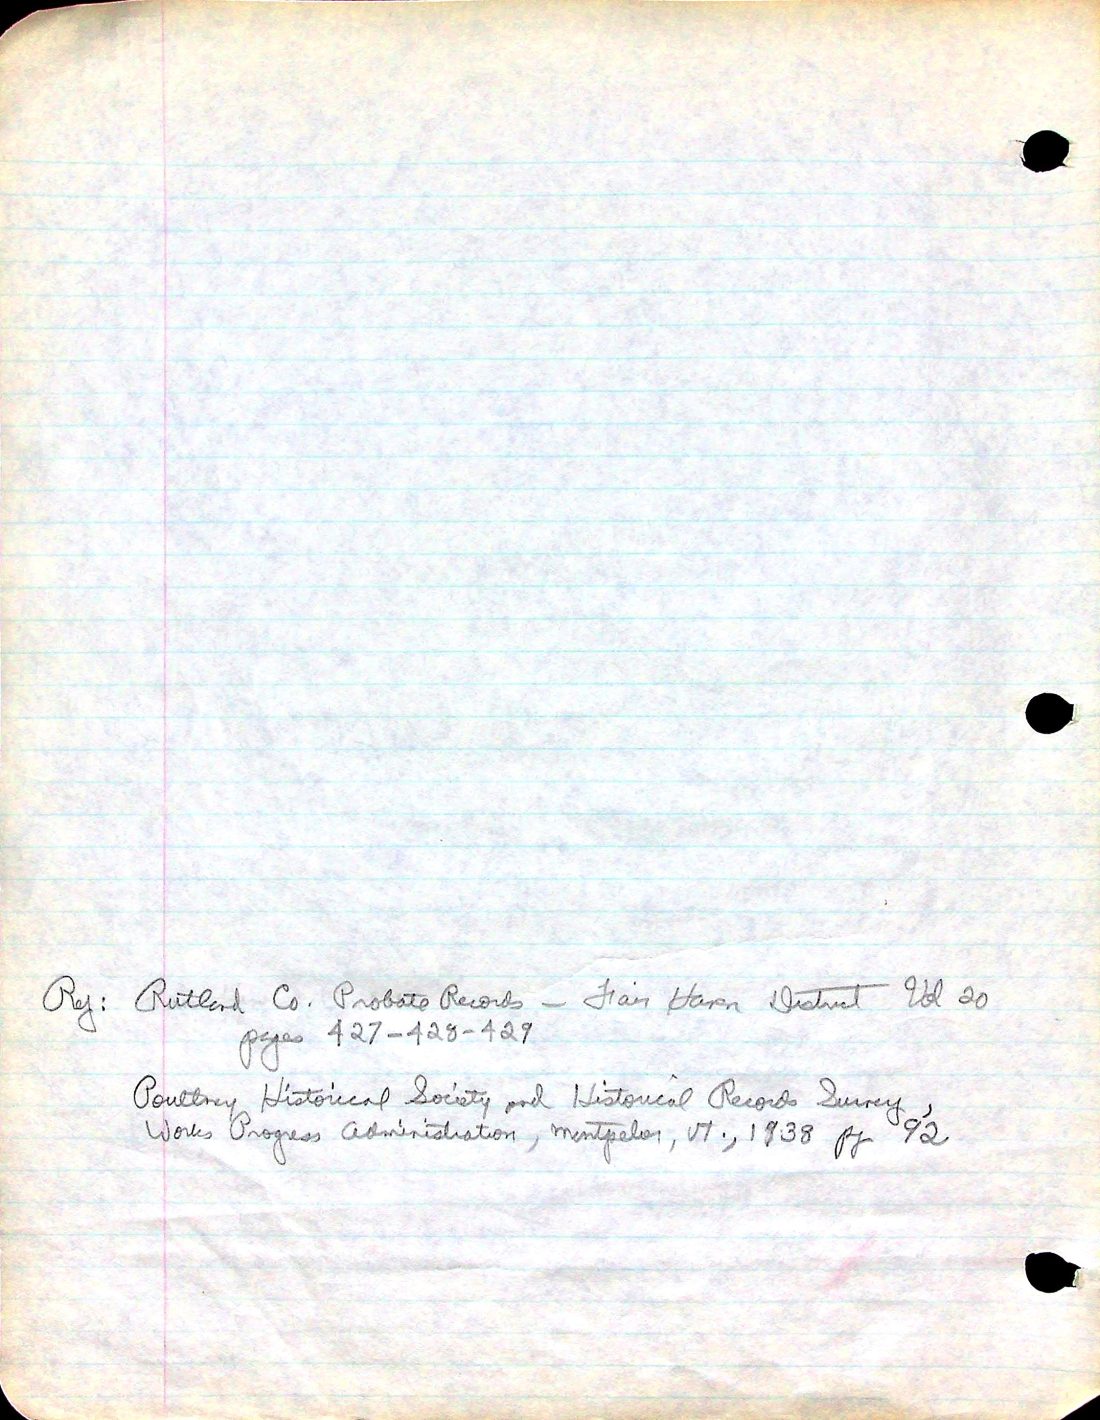 Ref: Rutland Co. Probate Records — Fair Haven District Vol 20
pages 427-428-429
Poultney Historical Society and Historical Records Survey,
Works Progress Administration, Montpelier, Vt., 1938 pg 92